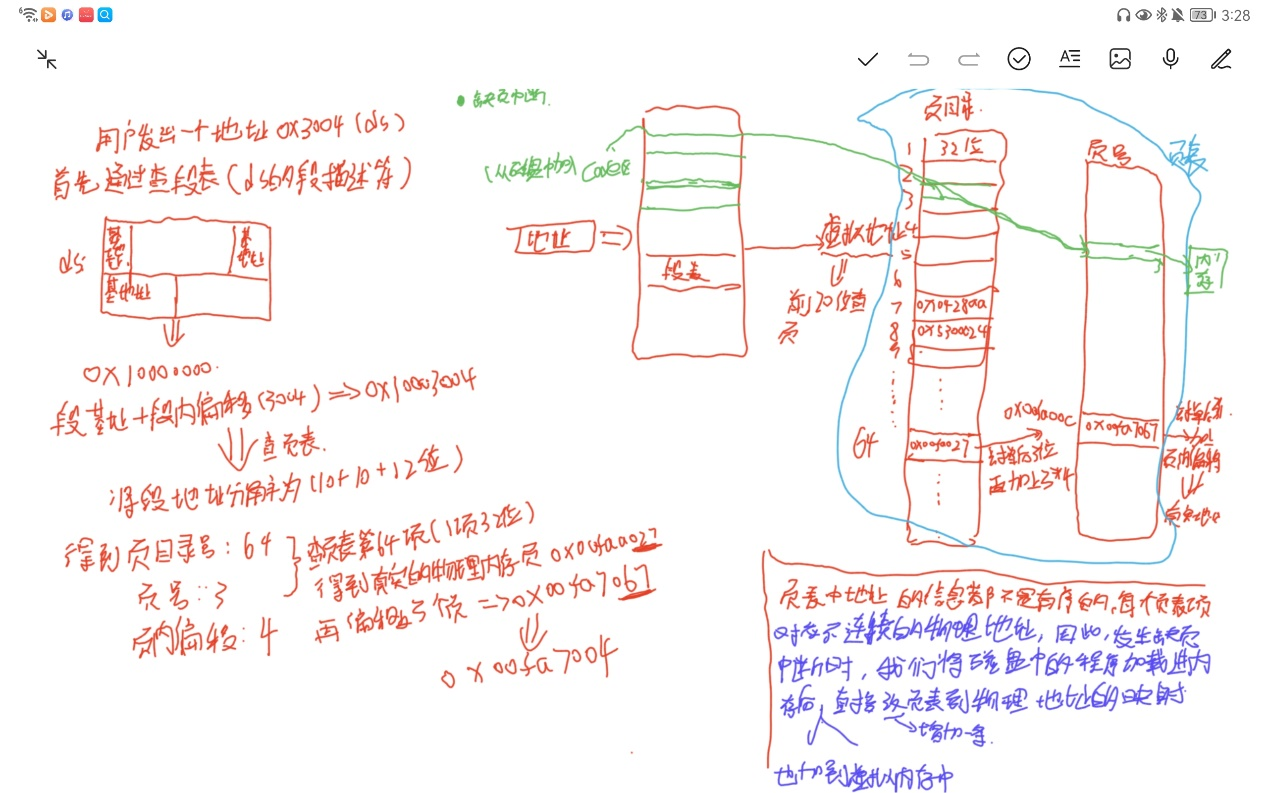 73 3:28
用户发出一个地址 0x3004 (ds)
首先通过查段表 (ds的段描述符)
ds
基地址
基地址
基地址
0x10000000.
段基址+段内偏移(3004) => 0x10003004
查页表.
将段地址分解为 (10+10+12位)
得到页目录号: 64
页号: 3
页内偏移: 4
查页表第64项 (1项32位)
得到真实的物理内存页 0x00faa027
再偏移3个页 => 0x00fa7067
0x00fa7004
缺页中断.
(从磁盘中加) Code段
地址
段表
虚拟地址
前20位查
页
页目录.
1 32位
2
3
4
5
6
7 0x10428aa
8 0x5300024
9
64
0x00faa00c
去掉后3位
再加上3*4
页号
0x00fa7067
页表
内存
加上
页内偏移
页表中地址的信息都不是有序的,每个页表项
对应不连续的物理地址, 因此, 发生缺页
中断时, 我们将磁盘中的程序加载进内
存后, 直接改页表到物理地址的映射
增加一条.
也加到虚拟内存中